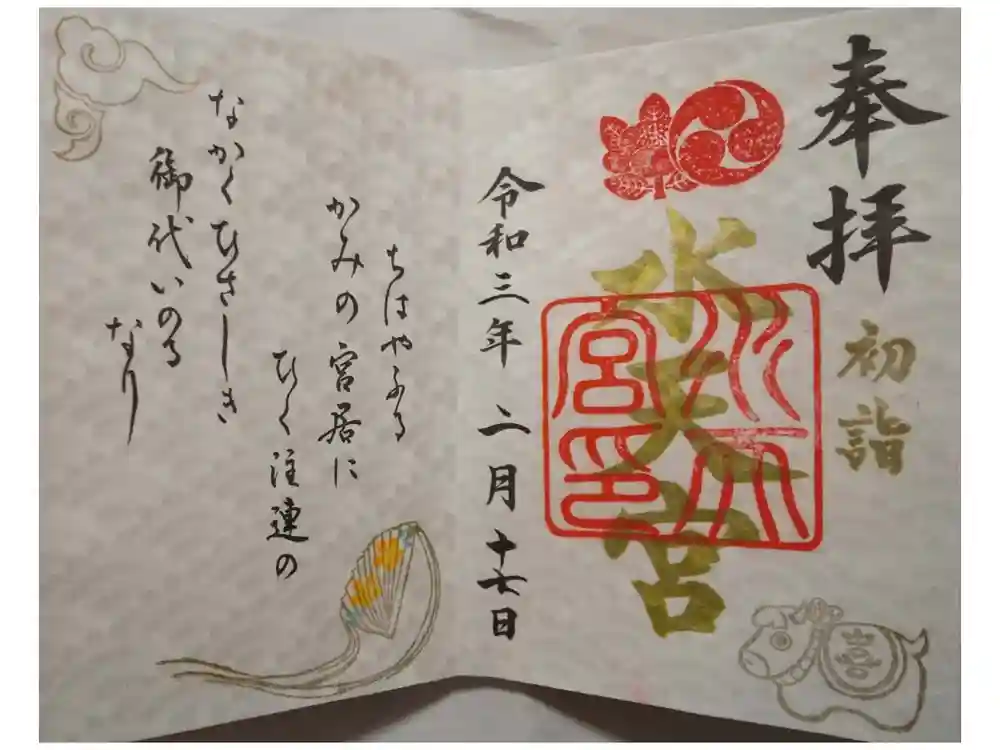 奉拝
初詣
水天宮
水天宮印
令和三年 二月 十七日
ちはやふる
かみの宮居に
ひく注連の
なかくひさしき
御代いのる
なり
喜